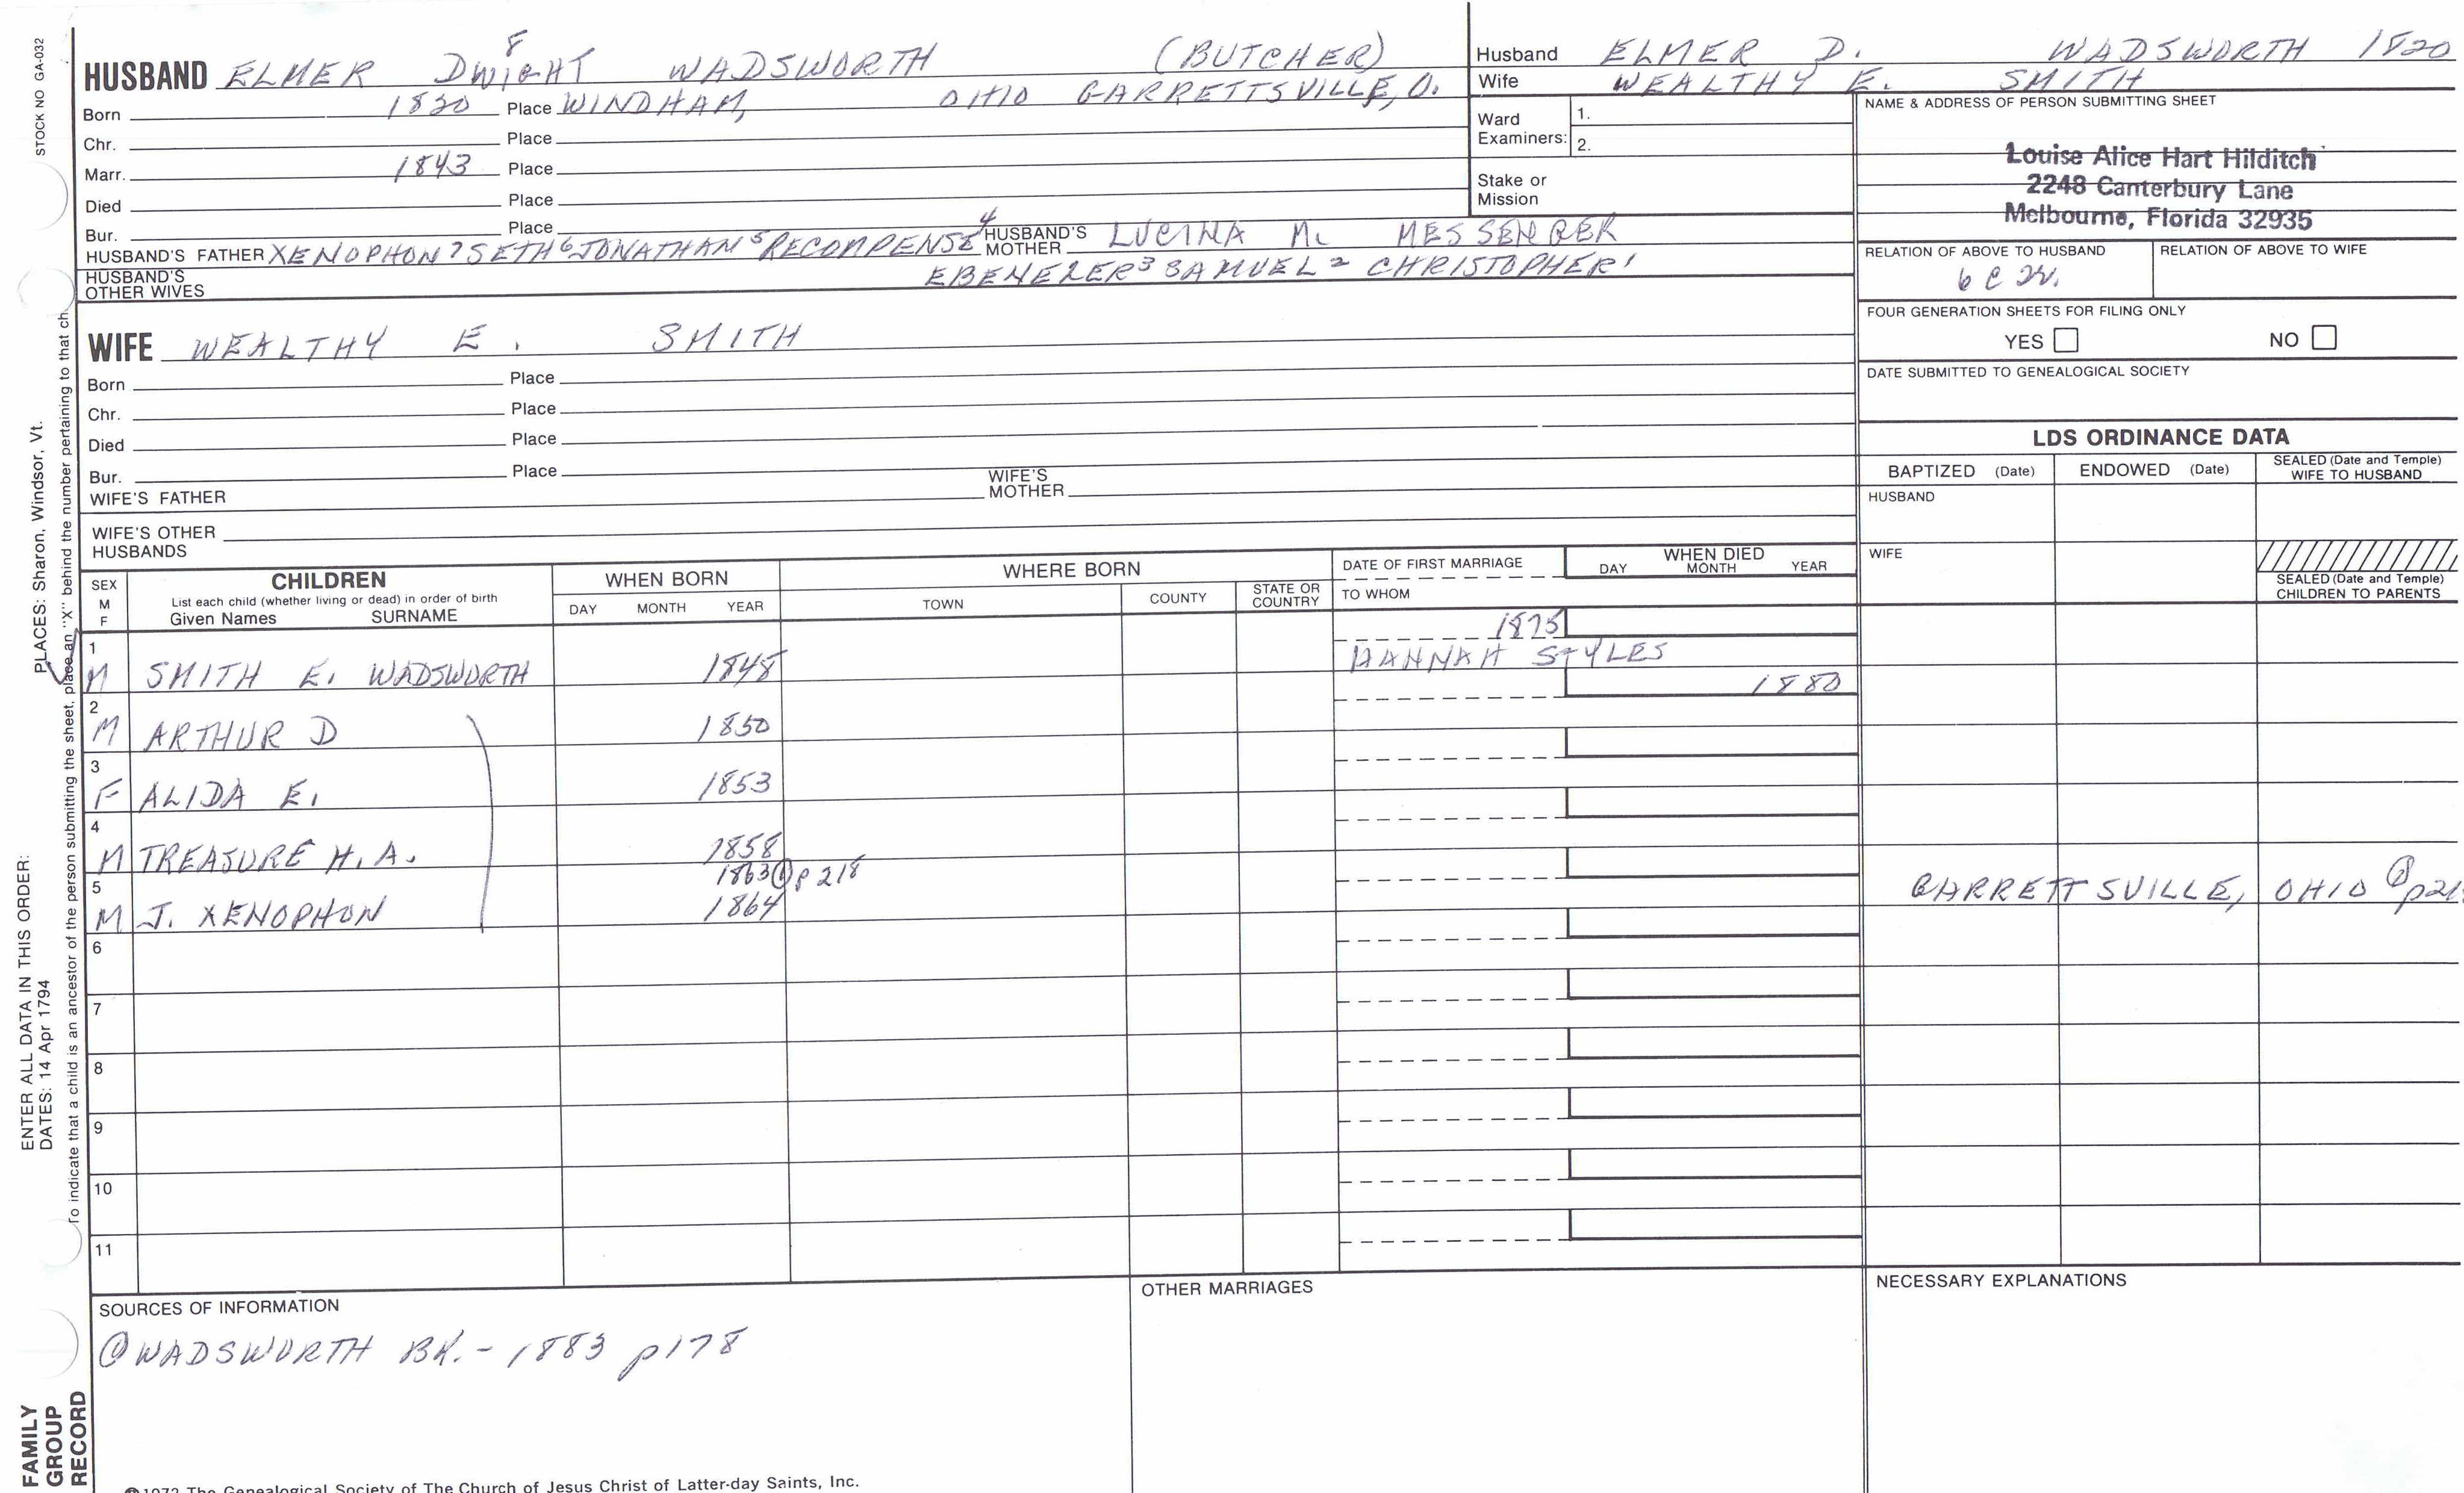 STOCK NO GA-032
HUSBAND ELMER DWIGHT 8 WADSWORTH (BUTCHER)
Born 1820 Place WINDHAM, OHIO GARRETTSVILLE, O.
Chr. Place
Marr. 1843 Place
Died Place
Bur. Place
HUSBAND'S FATHER XENOPHON 7 SETH 6 JONATHAN 5 RECOMPENSE 4 HUSBAND'S MOTHER LUCINA M. MESSENGER
HUSBAND'S OTHER WIVES EBENEZER 3 SAMUEL 2 CHRISTOPHER 1
Husband ELMER D. WADSWORTH 1820
Wife WEALTHY E. SMITH
Ward Examiners: 1.
2.
Stake or Mission
NAME & ADDRESS OF PERSON SUBMITTING SHEET
Louise Alice Hart Hilditch
2248 Canterbury Lane
Melbourne, Florida 32935
RELATION OF ABOVE TO HUSBAND RELATION OF ABOVE TO WIFE
6 C
FOUR GENERATION SHEETS FOR FILING ONLY
YES NO
DATE SUBMITTED TO GENEALOGICAL SOCIETY
WIFE WEALTHY E. SMITH
Born Place
Chr. Place
Died Place
Bur. Place
WIFE'S FATHER WIFE'S MOTHER
WIFE'S OTHER HUSBANDS
LDS ORDINANCE DATA
BAPTIZED (Date) ENDOWED (Date) SEALED (Date and Temple) WIFE TO HUSBAND
HUSBAND
WIFE
SEALED (Date and Temple) CHILDREN TO PARENTS
SEX M F
CHILDREN
List each child (whether living or dead) in order of birth
Given Names SURNAME
WHEN BORN
DAY MONTH YEAR
WHERE BORN
TOWN COUNTY STATE OR COUNTRY
DATE OF FIRST MARRIAGE
TO WHOM
WHEN DIED
DAY MONTH YEAR
1875
1 M SMITH E. WADSWORTH 1848 HANNAH STYLES
1880
2 M ARTHUR D 1850
3 F ALIDA E. 1853
4 M TREASURE H. A. 1858
1863 p 218
5 M J. XENOPHON 1864 GARRETTSVILLE, OHIO
6
7
8
9
10
11
SOURCES OF INFORMATION
① WADSWORTH BK. - 1883 p178
OTHER MARRIAGES
NECESSARY EXPLANATIONS
PLACES: Sharon, Windsor, Vt.
ENTER ALL DATA IN THIS ORDER:
DATES: 14 Apr 1794
To indicate that a child is an ancestor of the person submitting the sheet, place an "X" behind the number pertaining to that ch
FAMILY
GROUP
RECORD
1972 The Genealogical Society of The Church of Jesus Christ of Latter-day Saints, Inc.